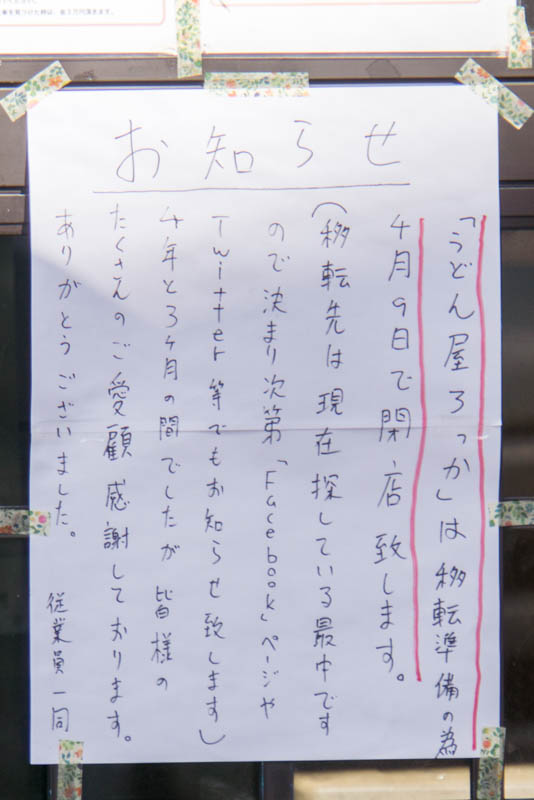 を見つけた時は、金3万円頂きます。
お知らせ
「うどん屋ろっか」は移転準備の為
4月9日で閉店致します。
(移転先は現在探している最中です
ので決まり次第「Facebook」ページや
Twitter等でもお知らせ致します)
4年と3ヶ月の間でしたが皆様の
たくさんのご愛顧感謝しております。
ありがとうございました。
従業員一同